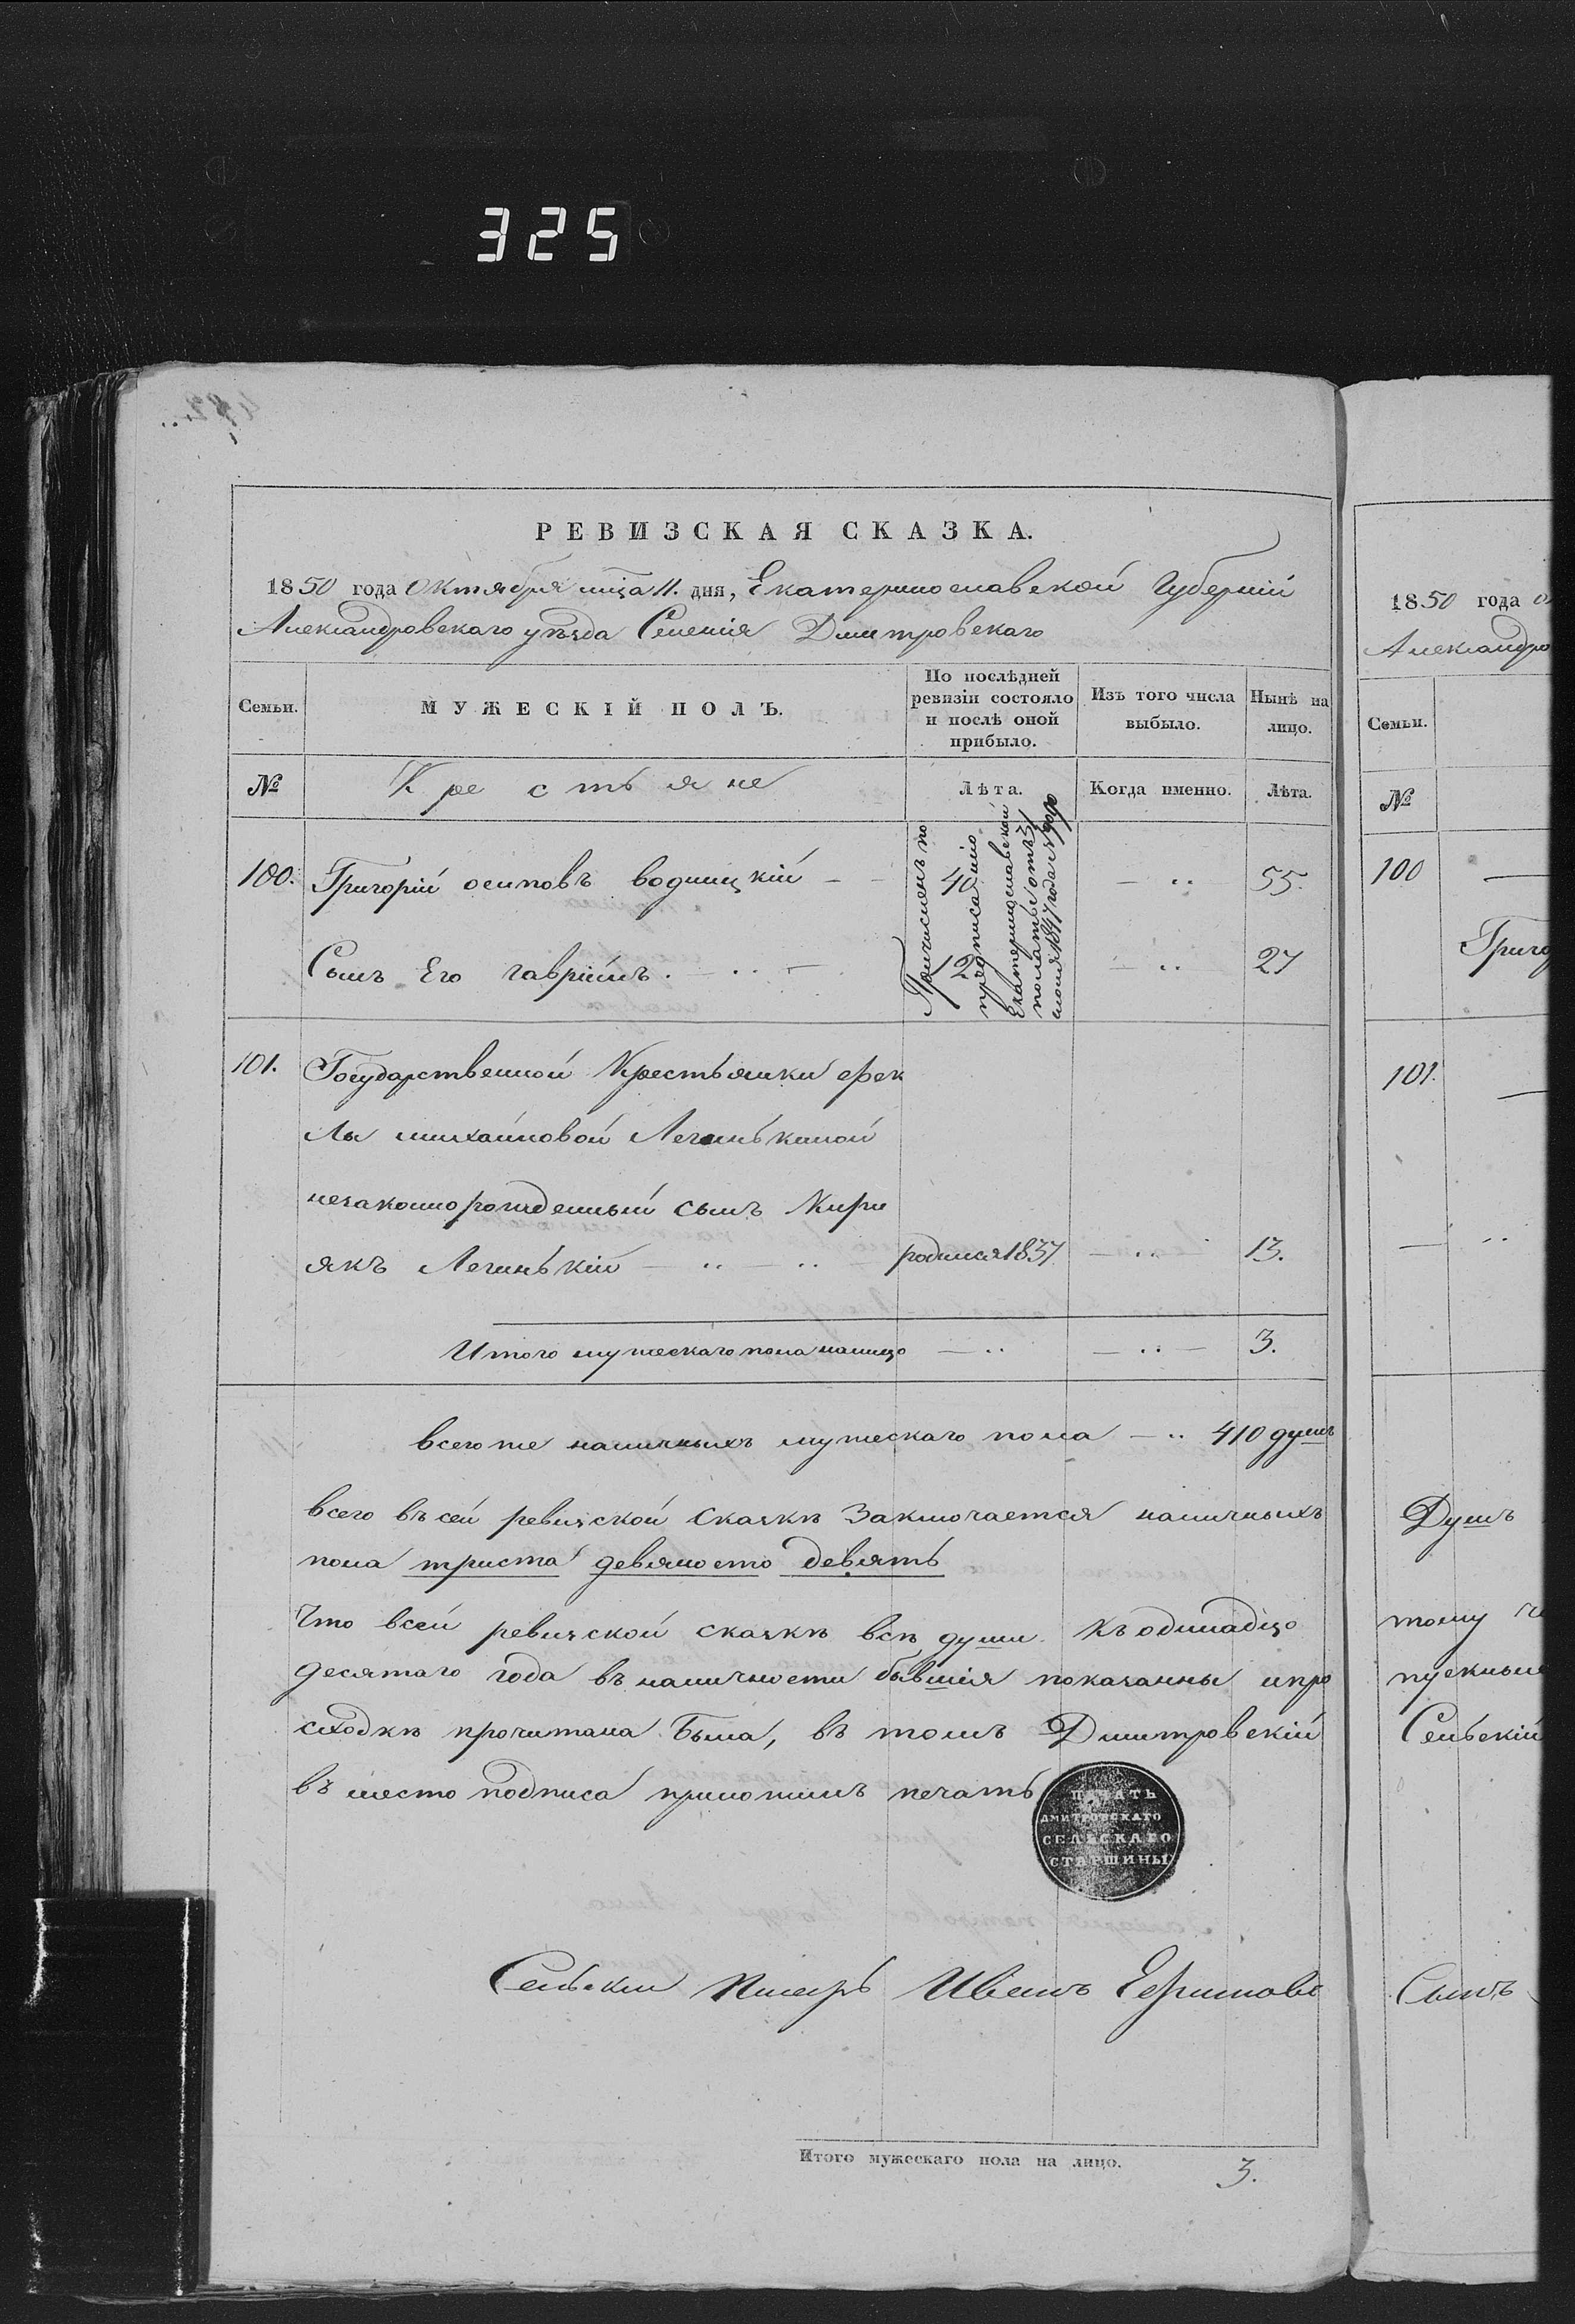 325
РЕВИЗСКАЯ СКАЗКА.
1850 года Октября мца 11. дня, Екатеринославской Губерніи
Александровскаго уѣзда Селенія Дмитровскаго
Семьи.
МУЖЕСКІЙ ПОЛЪ.
По послѣдней
ревизіи состояло
и послѣ оной
прибыло.
Изъ того числа
выбыло.
Нынѣ на
лицо.
№
Крестьяне
Лѣта.
Когда именно.
Лѣта.
100. Григорій осиповъ водницкій 40 55.
Сынъ Его гаврiилъ. 12 27
Причисленъ по
предписанію
Екатеринославской
палаты отъ 31
1847 года
101. Государственной Крестьянки фек
лы михайловой Легинькиной
незаконнорожденный сынъ Кири
якъ Легинькій родился 1837 13.
Итого мужескаго пола налицо 3.
всего же наличныхъ мужескаго пола 410 душъ
всего въ сей ревизской сказкѣ Заключается наличныхъ
пола триста девяносто девять
Что всей ревизской сказкѣ всѣ души къ одинадцо
десятаго года въ наличности бывшія показанны и про
сходкѣ прочитана была, въ томъ Дмитровскій
въ место подписа приложилъ печать
ПЕЧАТЬ
ДМИТРОВСКАГО
СЕЛЬСКАГО
СТАРШИНЫ
Сельскии Писарь Иванъ Ефимовъ
Итого мужескаго пола на лицо. 3.
1850 года о
Александро
Семьи.
№
100
Григо
101.
Душъ
тому
пускные
Сельскій